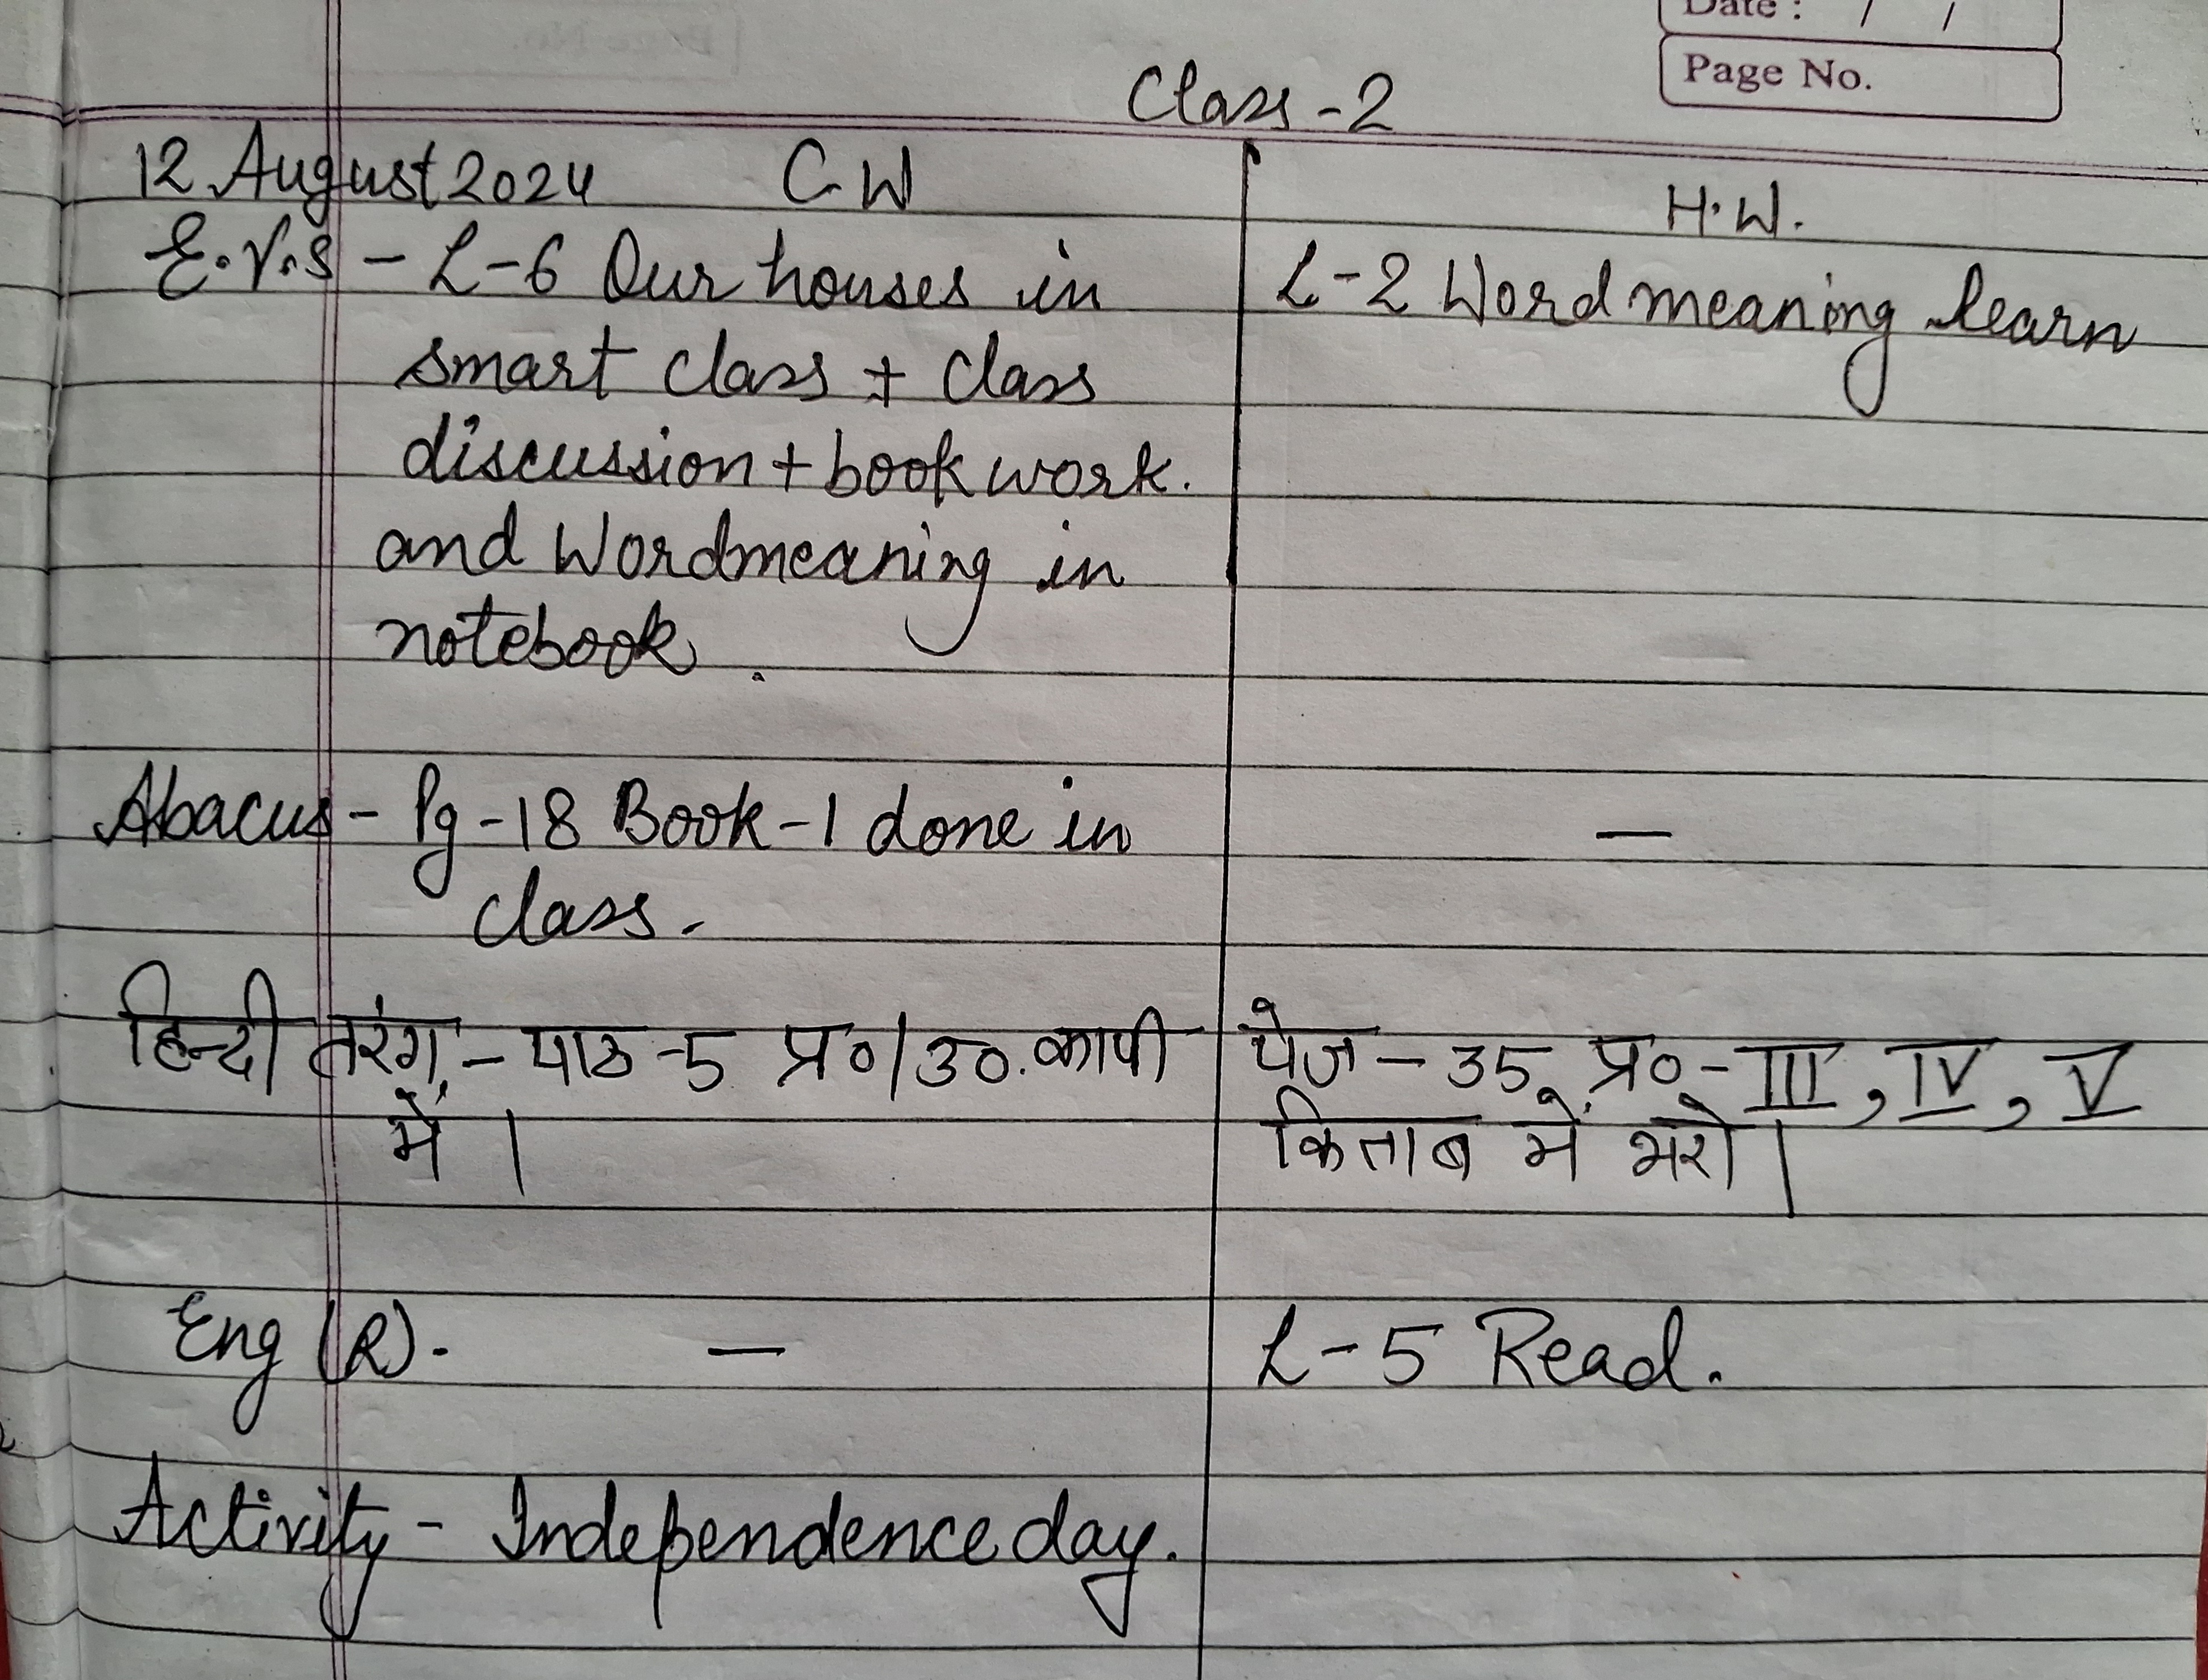 Date : / /
Page No.
Class - 2
12 August 2024 C.W
H.W.
E.V.S - L-6 Our houses in
L-2 Word meaning learn
smart class + class
discussion + book work.
and Wordmeaning in
notebook.
Abacus - Pg - 18 Book - 1 done in
—
class.
हिन्दी तरंग - पाठ -5 प्र०/उ०. कापी
पेज - 35 प्र० - III, IV, V
में।
किताब में भरो।
Eng (R). —
L-5 Read.
Activity - Independence day.